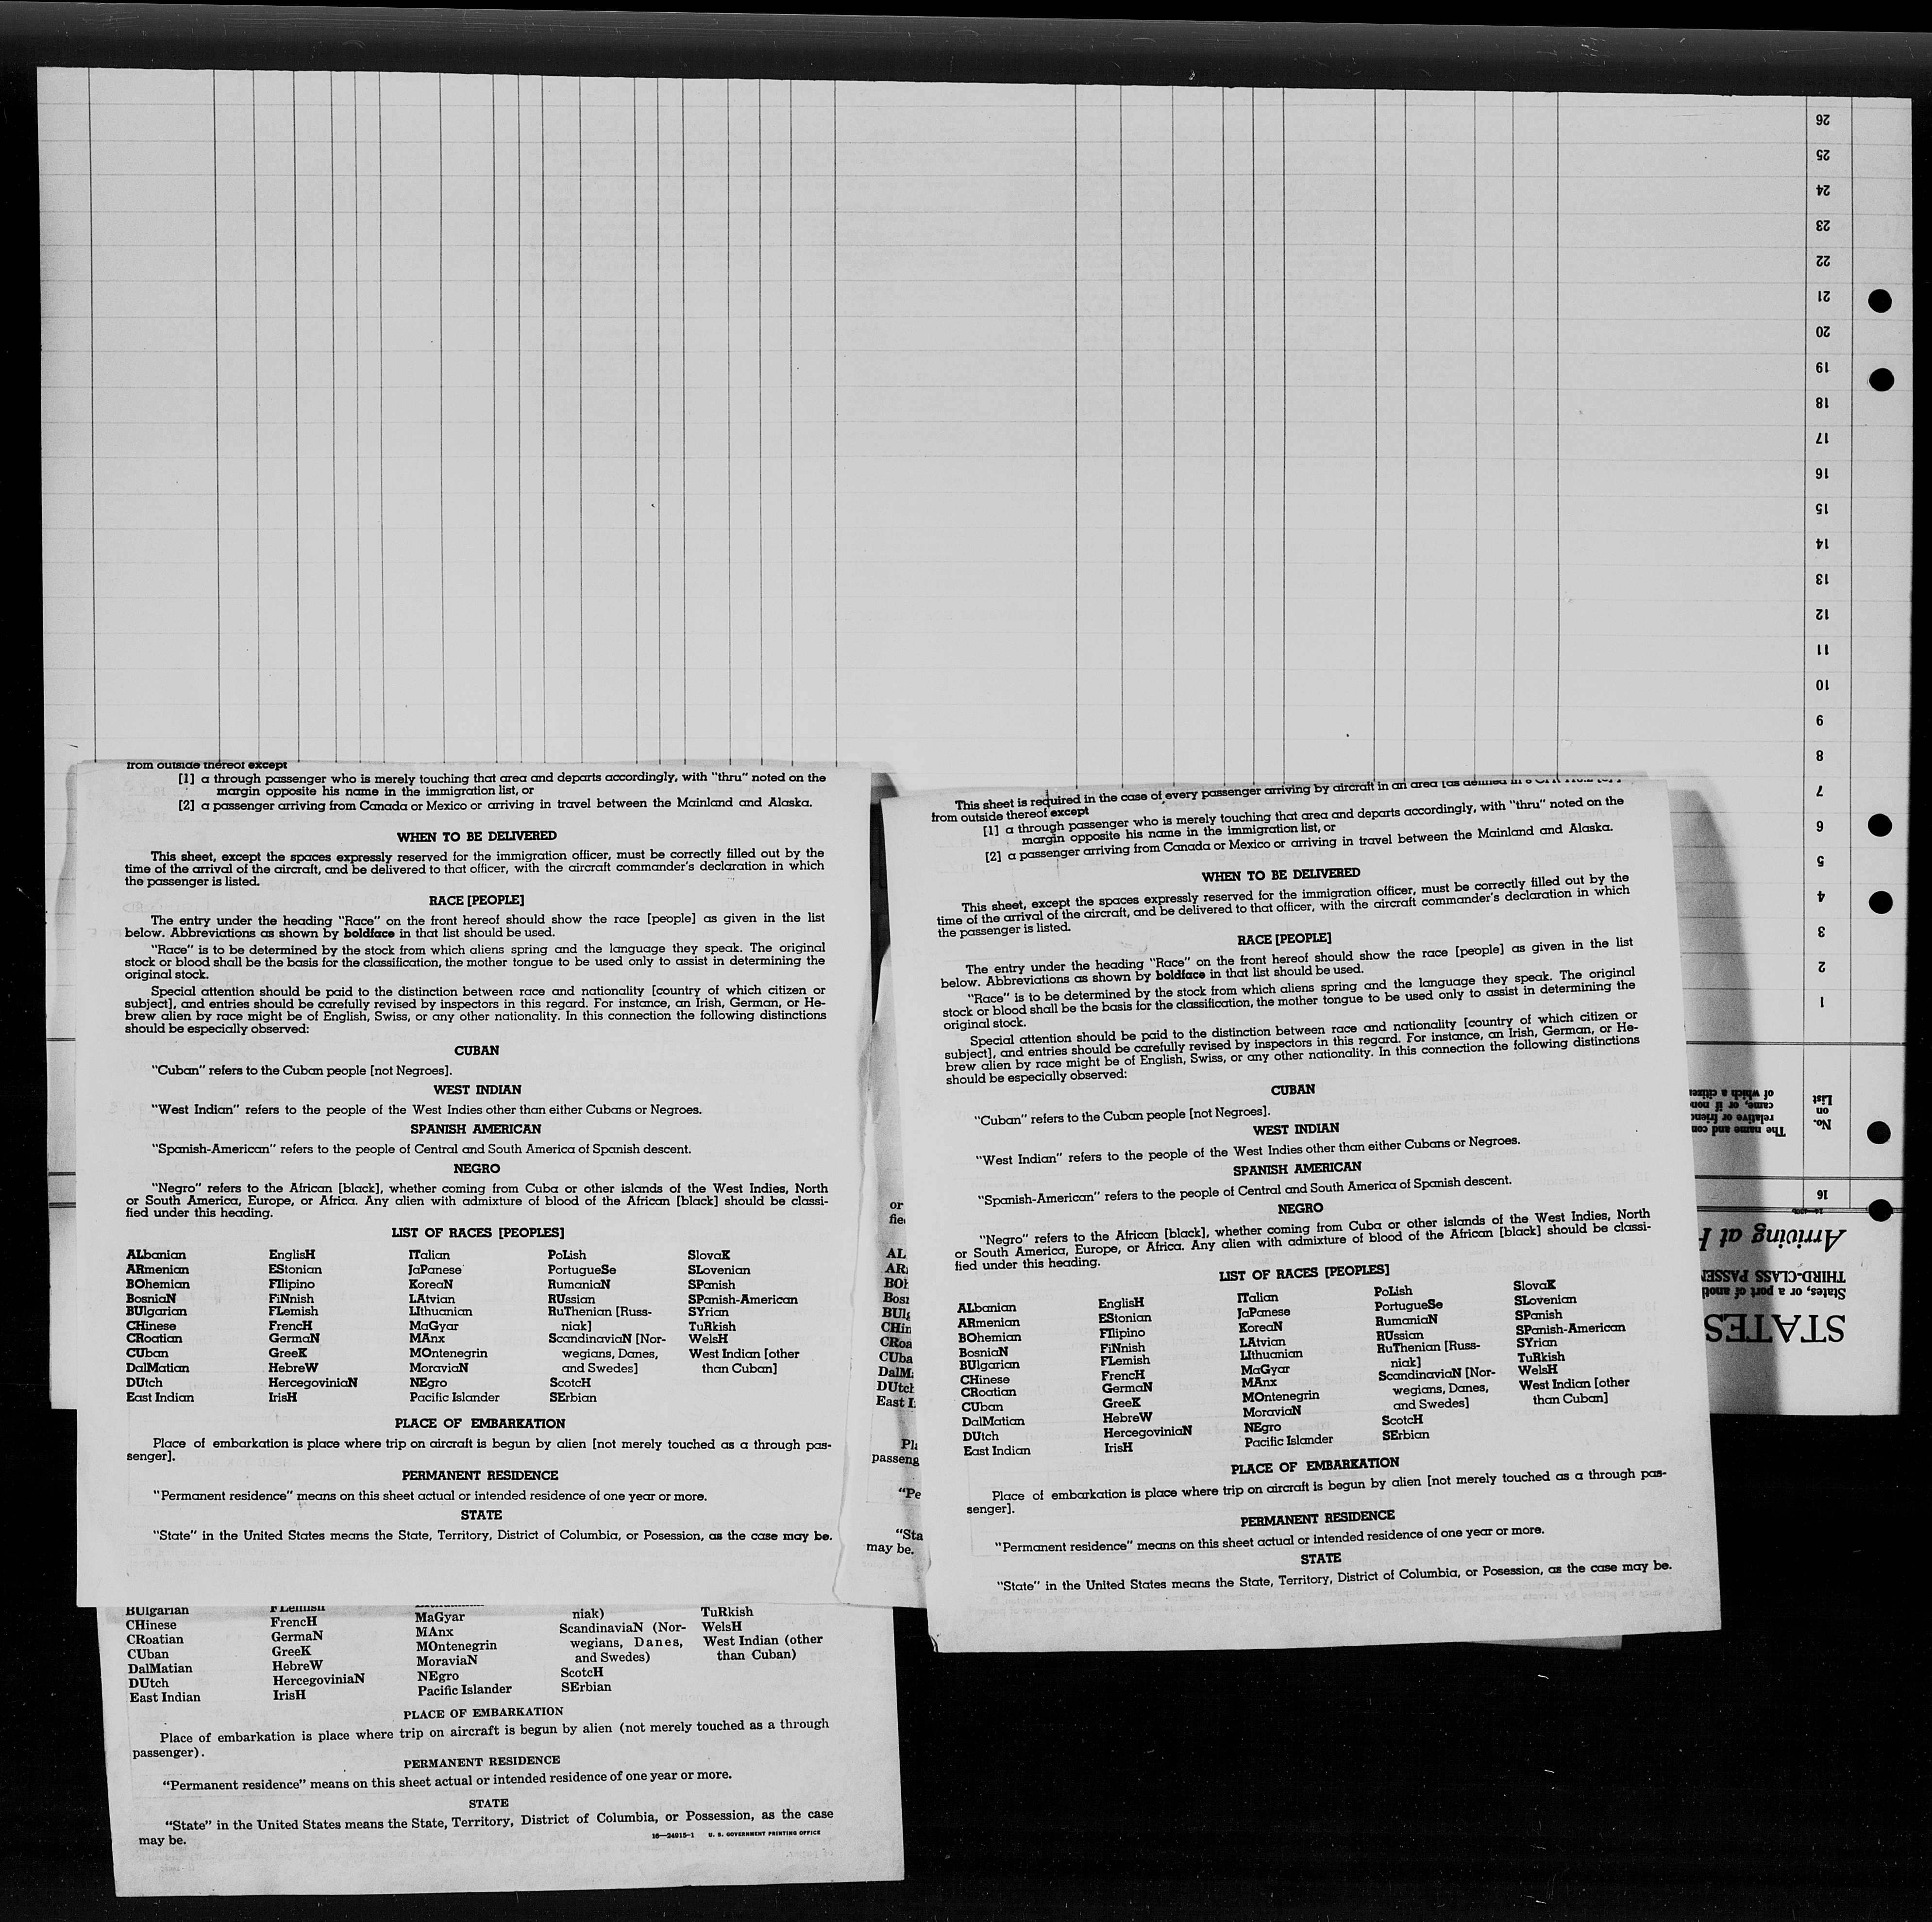 from outside thereof except
[1] a through passenger who is merely touching that area and departs accordingly, with "thru" noted on the
margin opposite his name in the immigration list, or
[2] a passenger arriving from Canada or Mexico or arriving in travel between the Mainland and Alaska.
WHEN TO BE DELIVERED
This sheet, except the spaces expressly reserved for the immigration officer, must be correctly filled out by the
time of the arrival of the aircraft, and be delivered to that officer, with the aircraft commander's declaration in which
the passenger is listed.
RACE [PEOPLE]
The entry under the heading "Race" on the front hereof should show the race [people] as given in the list
below. Abbreviations as shown by boldface in that list should be used.
"Race" is to be determined by the stock from which aliens spring and the language they speak. The original
stock or blood shall be the basis for the classification, the mother tongue to be used only to assist in determining the
original stock.
Special attention should be paid to the distinction between race and nationality [country of which citizen or
subject], and entries should be carefully revised by inspectors in this regard. For instance, an Irish, German, or He-
brew alien by race might be of English, Swiss, or any other nationality. In this connection the following distinctions
should be especially observed:
CUBAN
"Cuban" refers to the Cuban people [not Negroes].
WEST INDIAN
"West Indian" refers to the people of the West Indies other than either Cubans or Negroes.
SPANISH AMERICAN
"Spanish-American" refers to the people of Central and South America of Spanish descent.
NEGRO
"Negro" refers to the African [black], whether coming from Cuba or other islands of the West Indies, North
or South America, Europe, or Africa. Any alien with admixture of blood of the African [black] should be classi-
fied under this heading.
LIST OF RACES [PEOPLES]
ALbanian EnglisH ITalian PoLish SlovaK
ARmenian EStonian JaPanese PortugueSe SLovenian
BOhemian FIlipino KoreaN RumaniaN SPanish
BosniaN FiNnish LAtvian RUssian SPanish-American
BUlgarian FLemish LIthuanian RuThenian [Russ- SYrian
CHinese FrencH MaGyar niak] TuRkish
CRoatian GermaN MAnx ScandinaviaN [Nor- WelsH
CUban GreeK MOntenegrin wegians, Danes, West Indian [other
DalMatian HebreW MoraviaN and Swedes] than Cuban]
DUtch HercegoviniaN NEgro ScotcH
East Indian IrisH Pacific Islander SErbian
PLACE OF EMBARKATION
Place of embarkation is place where trip on aircraft is begun by alien [not merely touched as a through pas-
senger].
PERMANENT RESIDENCE
"Permanent residence" means on this sheet actual or intended residence of one year or more.
STATE
"State" in the United States means the State, Territory, District of Columbia, or Posession, as the case may be.
BUlgarian FLemish
CHinese FrencH MaGyar niak) TuRkish
CRoatian GermaN MAnx ScandinaviaN (Nor- WelsH
CUban GreeK MOntenegrin wegians, Danes, West Indian (other
DalMatian HebreW MoraviaN and Swedes) than Cuban)
DUtch HercegoviniaN NEgro ScotcH
East Indian IrisH Pacific Islander SErbian
PLACE OF EMBARKATION
Place of embarkation is place where trip on aircraft is begun by alien (not merely touched as a through
passenger).
PERMANENT RESIDENCE
"Permanent residence" means on this sheet actual or intended residence of one year or more.
STATE
"State" in the United States means the State, Territory, District of Columbia, or Possession, as the case
may be.
16—24915-1 U. S. GOVERNMENT PRINTING OFFICE
or
fie
AL
AR
BO
Bos
BUlg
CHin
CRoa
CUba
DalM
DUtch
East I
Pl
passeng
"Pe
"Sta
may be.
This sheet is required in the case of every passenger arriving by aircraft in an area [as defined in 8
from outside thereof except
[1] a through passenger who is merely touching that area and departs accordingly, with "thru" noted on the
margin opposite his name in the immigration list, or
[2] a passenger arriving from Canada or Mexico or arriving in travel between the Mainland and Alaska.
WHEN TO BE DELIVERED
This sheet, except the spaces expressly reserved for the immigration officer, must be correctly filled out by the
time of the arrival of the aircraft, and be delivered to that officer, with the aircraft commander's declaration in which
the passenger is listed.
RACE [PEOPLE]
The entry under the heading "Race" on the front hereof should show the race [people] as given in the list
below. Abbreviations as shown by boldface in that list should be used.
"Race" is to be determined by the stock from which aliens spring and the language they speak. The original
stock or blood shall be the basis for the classification, the mother tongue to be used only to assist in determining the
original stock.
Special attention should be paid to the distinction between race and nationality [country of which citizen or
subject], and entries should be carefully revised by inspectors in this regard. For instance, an Irish, German, or He-
brew alien by race might be of English, Swiss, or any other nationality. In this connection the following distinctions
should be especially observed:
CUBAN
"Cuban" refers to the Cuban people [not Negroes].
WEST INDIAN
"West Indian" refers to the people of the West Indies other than either Cubans or Negroes.
SPANISH AMERICAN
"Spanish-American" refers to the people of Central and South America of Spanish descent.
NEGRO
"Negro" refers to the African [black], whether coming from Cuba or other islands of the West Indies, North
or South America, Europe, or Africa. Any alien with admixture of blood of the African [black] should be classi-
fied under this heading.
LIST OF RACES [PEOPLES]
ALbanian EnglisH ITalian PoLish SlovaK
ARmenian EStonian JaPanese PortugueSe SLovenian
BOhemian FIlipino KoreaN RumaniaN SPanish
BosniaN FiNnish LAtvian RUssian SPanish-American
BUlgarian FLemish LIthuanian RuThenian [Russ- SYrian
CHinese FrencH MaGyar niak] TuRkish
CRoatian GermaN MAnx ScandinaviaN [Nor- WelsH
CUban GreeK MOntenegrin wegians, Danes, West Indian [other
DalMatian HebreW MoraviaN and Swedes] than Cuban]
DUtch HercegoviniaN NEgro ScotcH
East Indian IrisH Pacific Islander SErbian
PLACE OF EMBARKATION
Place of embarkation is place where trip on aircraft is begun by alien [not merely touched as a through pas-
senger].
PERMANENT RESIDENCE
"Permanent residence" means on this sheet actual or intended residence of one year or more.
STATE
"State" in the United States means the State, Territory, District of Columbia, or Posession, as the case may be.
STATES
States, or a port of anoth
THIRD-CLASS PASSEN
Arriving at
16
No.
on
List
The name and con
relative or friend
came, or if non
of which a citizen
1
2
3
4
5
6
7
8
9
10
11
12
13
14
15
16
17
18
19
20
21
22
23
24
25
26